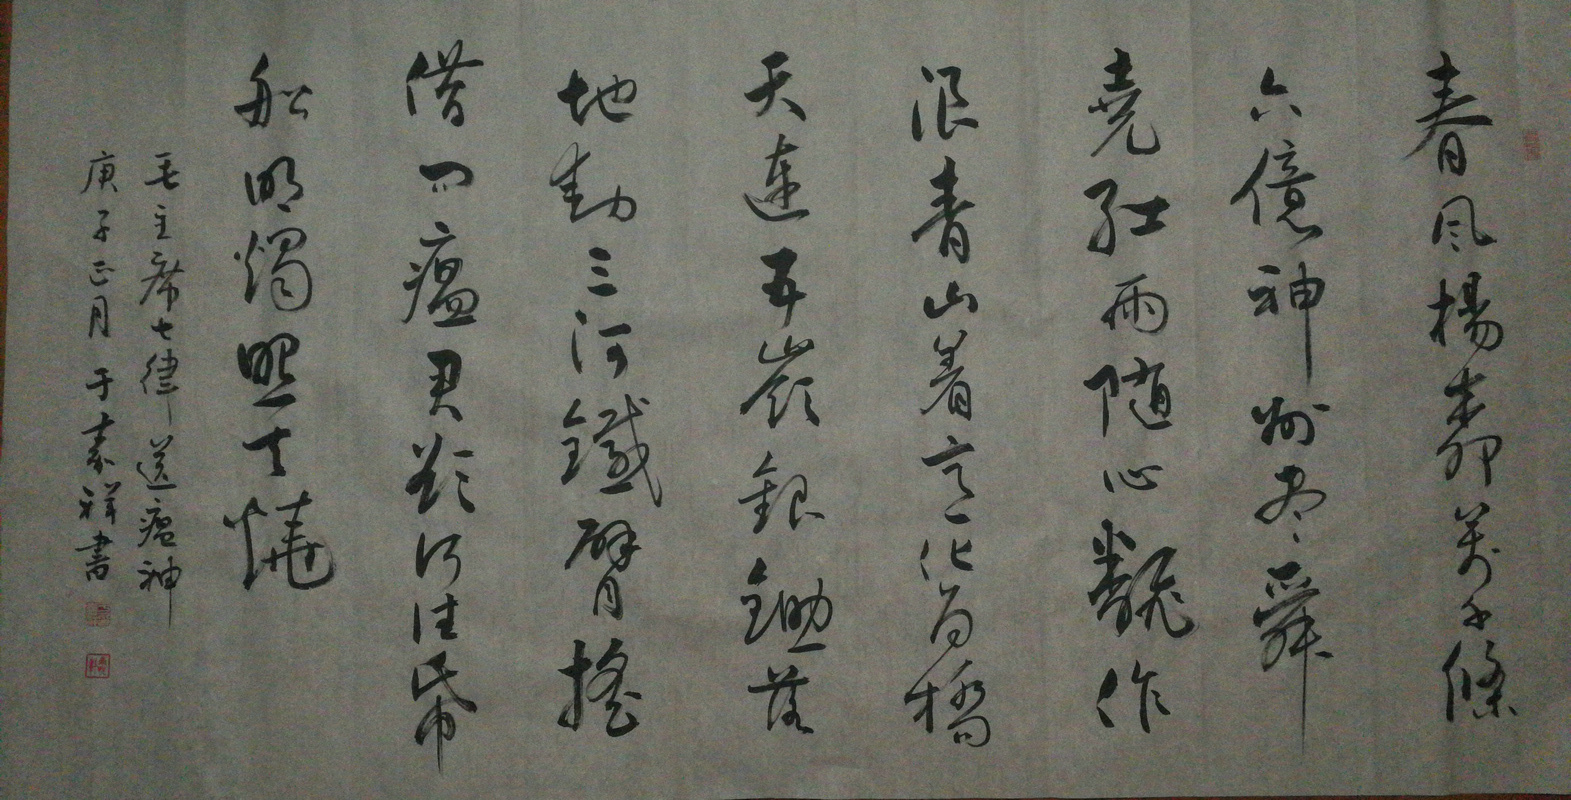 春風楊柳萬千條
六億神州盡舜
堯紅雨隨心翻作
浪青山着意化為橋
天連五嶺銀鋤落
地動三河鐵臂搖
借問瘟君欲何往紙
船明燭照天燒
毛主席七律送瘟神
庚子正月于素祥書